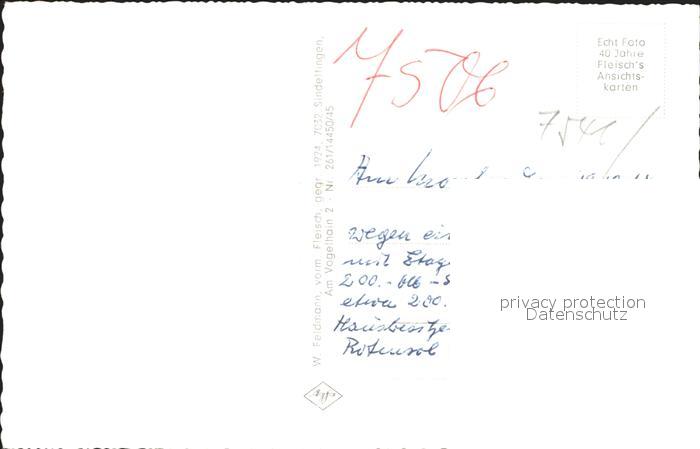 Echt Foto
40 Jahre
Fleisch's
Ansichts-
karten
7506
7541/
W. Feldmann, vorm. Fleisch, gegr. 1924, 7032 Sindelfingen,
Am Vogelhain 2 - Nr. 261/14450/45
wegen ein
mit Etag
200.-
etwa 200.
Hausbesitze
Rotensol
privacy protection
Datenschutz